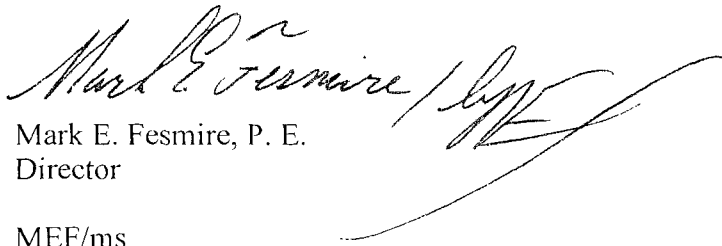 Mark E Fesmire /
Mark E. Fesmire, P. E.
Director
MEF/ms